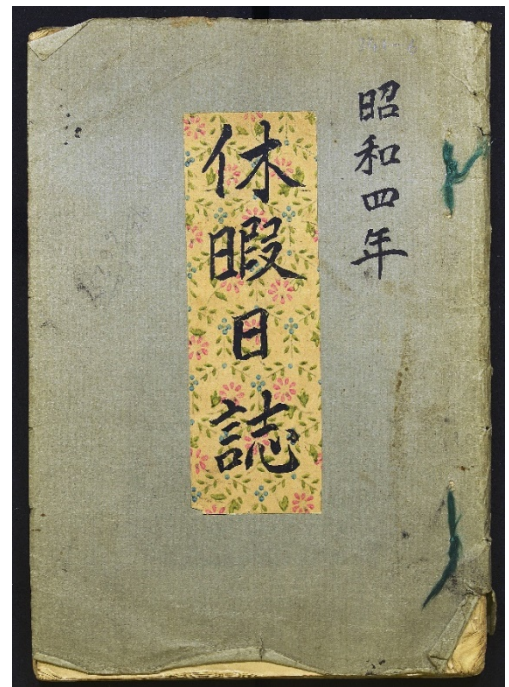 昭和四年
休暇日誌